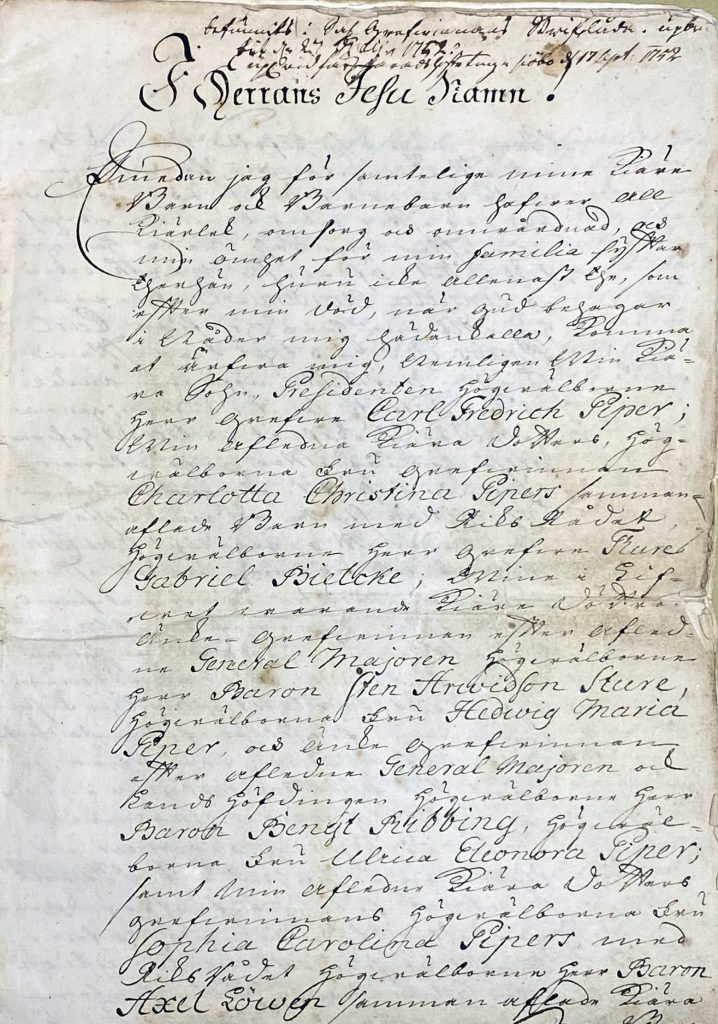 befunnits i Sal. Grefvinnans Skriflåda. upbr.
d 17 Sept. 1752
I Herrans Jesu Namn.
Emedan jag för samtelige mine Kiäre
Barn och Barnebarn hafwer all
Kiärlek, omsorg och omwårdnad, och
min ömhet för min familia syftar
therhän, huru icke allenast the, som
efter min död, när Gud behagar
i Nåder mig hädankalla, komma
at ärfwa mig, Nemligen Min Kiä-
ra Sohn, Presidenten Högwälborne
Herr Grefwe Carl Fredrich Piper;
Min afledna Kiära Dotters, Hög-
wälborna Fru Grefwinnan
Charlotta Christina Pipers samman-
aflede Barn med Riks Rådet,
Högwälborne Herr Grefwe Thures
Gabriel Bielcke; Mine i Lif-
wet warande Kiära Döttrar
Änke-Grefwinnan efter afled-
ne General Majoren Högwälborne
Herr Baron Sten Arwidson Sture,
Högwälborna Fru Hedwig Maria
Piper, och Änke Grefwinnan
efter afledne General Majoren och
Lands Höfdingen Högwälborne Herr
Baron Bengt Ribbing, Högwäl-
borna Fru Ulrica Eleonora Piper;
samt Min afledne Kiära Dotters
Grefwinnans Högwälborna Fru
Sophia Carolina Pipers med
Riks Rådet Högwälborne Herr Baron
Axel Löwen samman aflade Kiära